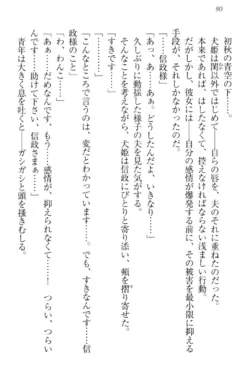 90
初秋の青空の下――。
犬姫は閨以外ではじめて――自らの唇を、夫のそれに重ねたのだった。
本来であれば、はしたなくて、控えなければならない浅ましい行動。
しかし、彼女には――自分の感情が爆発する前に、その被害を最小限に抑える
手段が、それしかなかった。
「――信政様」
「あ、ああ……。どうしたんだよ、いきなり……」
久しぶりに動揺した様子の夫を見た気がする。
そんなことを考えながら、犬姫は信政にぴとりと寄り添い、頬を摺り寄せた。
「すきです」
「わ、わんこ……」
「こんなところで言うのは、変だとわかっています……。でもすきなんです……信
政様のこと」
「あぁ……だめなんです、もう……感情が、抑えられなくて……つらい、つらい
……助けて下さい、信政さまぁ……」
青年は大きく息を吐くと――ガシガシと頭を掻きむしる。